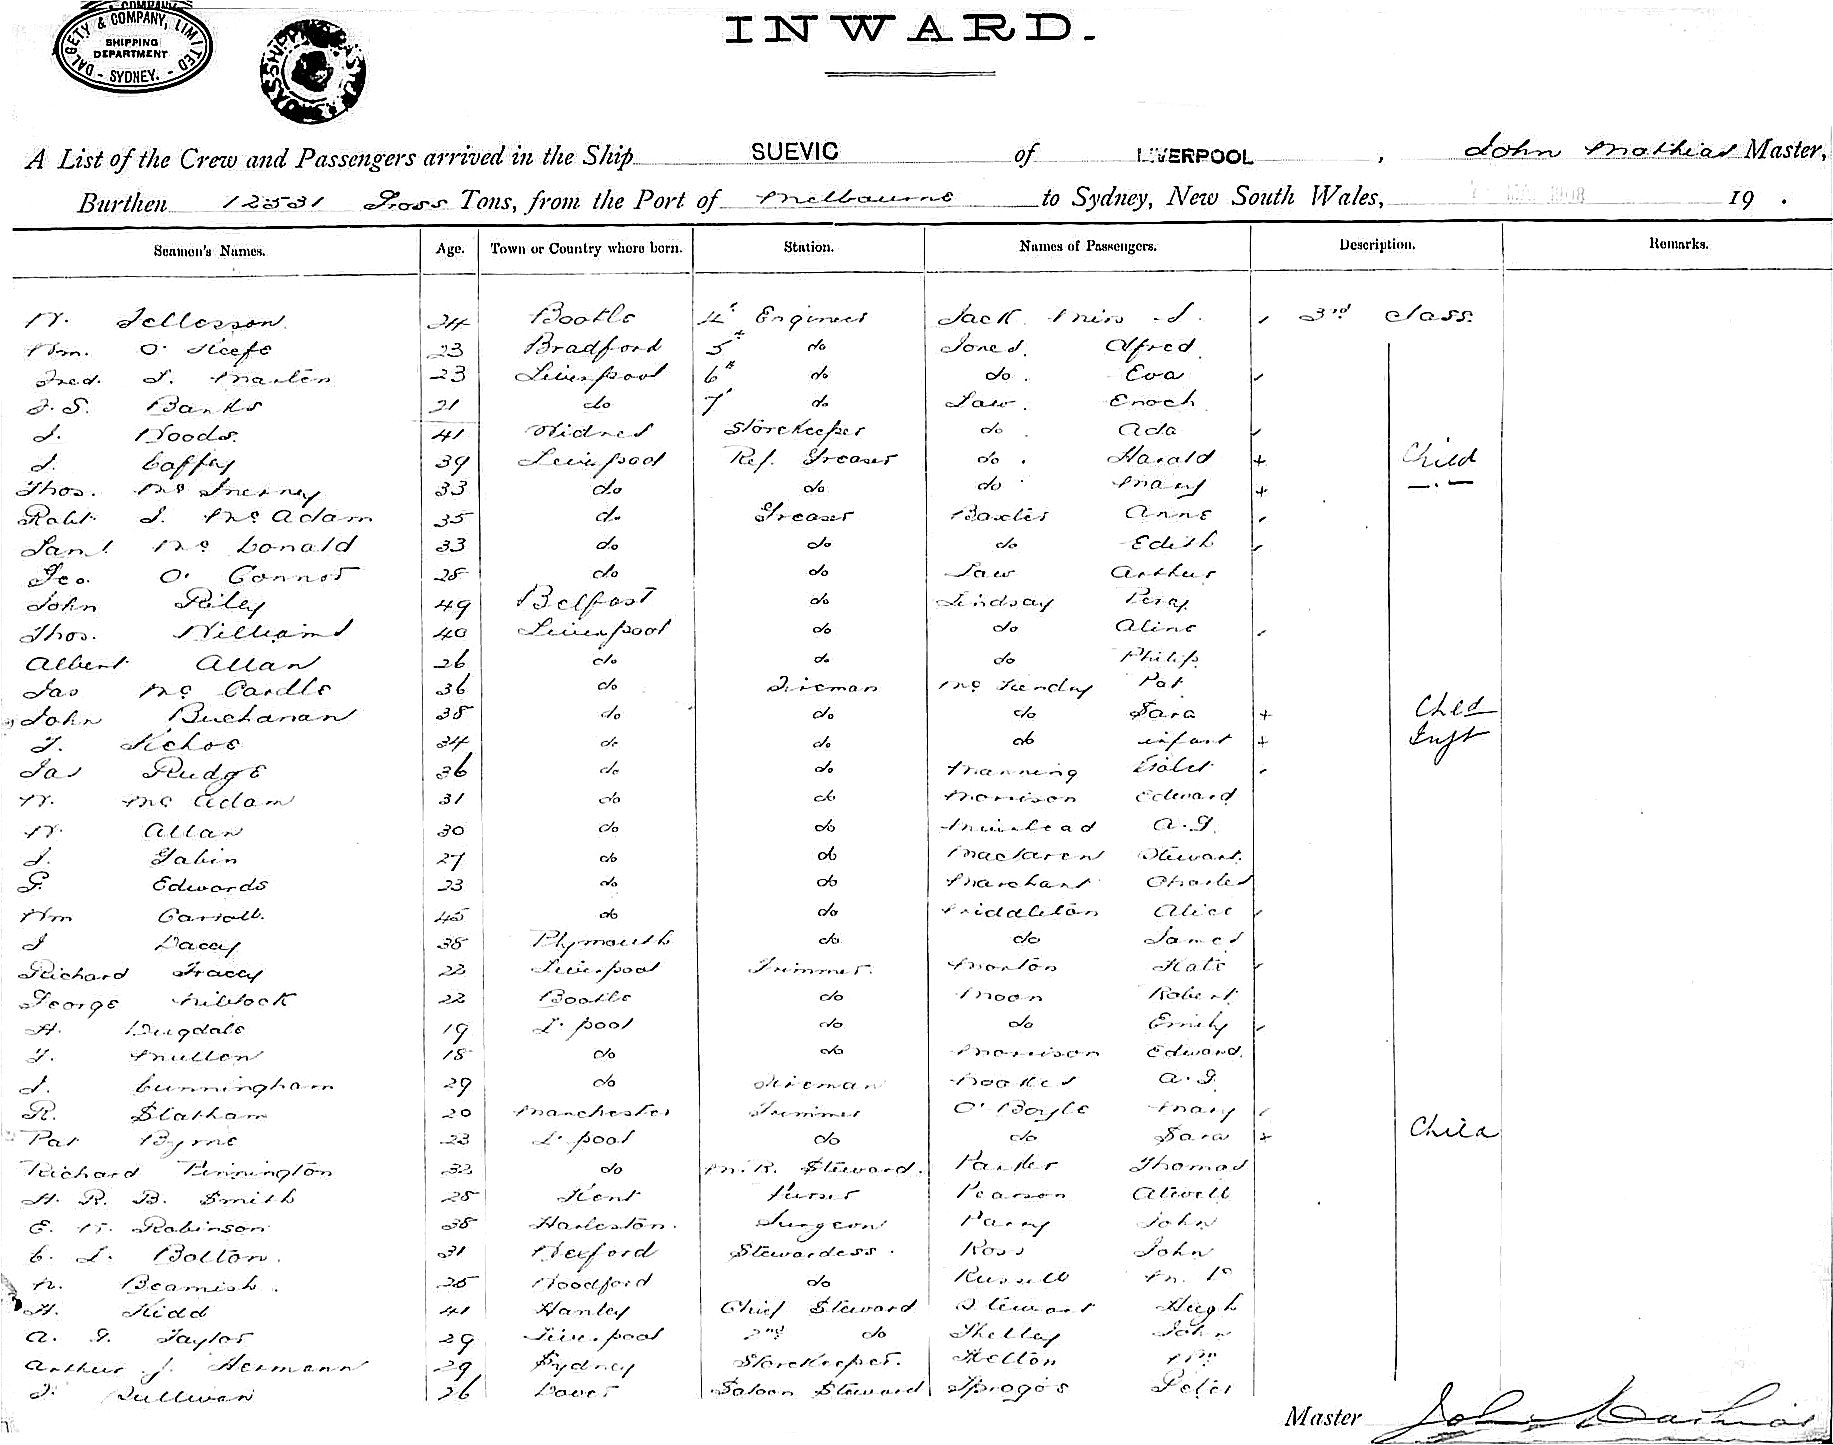 DALGETY & COMPANY, LIMITED
SHIPPING
DEPARTMENT
- SYDNEY. -
INWARD.
A List of the Crew and Passengers arrived in the Ship SUEVIC of LIVERPOOL, John Mathias Master,
Burthen 12531 Gross Tons, from the Port of Melbourne to Sydney, New South Wales, 1908 19 .
Seamen's Names. Age. Town or Country where born. Station. Names of Passengers. Description. Remarks.
W. Jellesson 24 Bootle 4th Engineer Jack Miss J. 3rd Class
Wm. O'Keefe 23 Bradford 5th do Jones. Alfred
Fred. J. Marten 23 Liverpool 6th do do. Eva
J. S. Banks 21 do 7 do Law. Enoch
J. Woods. 41 Widnes Storekeeper do. Ada
J. Caffey 39 Liverpool Ref. Greaser do. Harald + Child
Thos. McInerney 33 do do do Mary + - . -
Robt. J. McAdam 35 do Greaser Baxter Anne
Saml McDonald 33 do do do Edith
Geo. O'Connor 28 do do Law Arthur
John Riley 49 Belfast do Lindsay Percy
Thos. Williams 40 Liverpool do do Aline
Albert Allan 26 do do do Philip
Jas McCardle 36 do Fireman Pat
John Buchanan 38 do do do Sara + Child
T. Kehoe 34 do do do infant + Inft
Jas Rudge 36 do do Manning Violet
W. McAdam 31 do do Morrison Edward
W. Allan 30 do do Muirhead A. J.
J. Gabin 27 do do MacLaren Stewart.
G. Edwards 23 do do Marchant Charles
Wm Carroll. 45 do do Middleton Alice
J Dacey 38 Plymouth do do James
Richard Tracey 22 Liverpool Trimmer. Morton Kate
George Niblock 22 Bootle do Moon Robert
H. Dugdale 19 L'pool do do Emily
T. Mullen 18 do do Morrison Edward.
J. Cunningham 29 do Fireman Noakes A. J.
R. Statham 20 Manchester Trimmer O'Boyle Mary
Pat Byrne 23 L'pool do do Sara + Child
Richard Pennington 32 do M. R. Steward. Parker Thomas
H. R. B. Smith 28 Kent Purser Pearson Atwell
E. W. Robinson 38 Harleston. Surgeon Parry John
C. L. Bolton. 31 Wexford Stewardess. Ross John
N. Beamish. 25 Woodford do Russell
H. Kidd 41 Hanley Chief Steward Stewart Hugh
A. J. Taylor 29 Liverpool 2nd do Shelley John
Arthur J. Hermann 29 Sydney Storekeeper. Skelton Wm
J. Sullivan 26 Dover Saloon Steward Sproges Peter
Master John Mathias